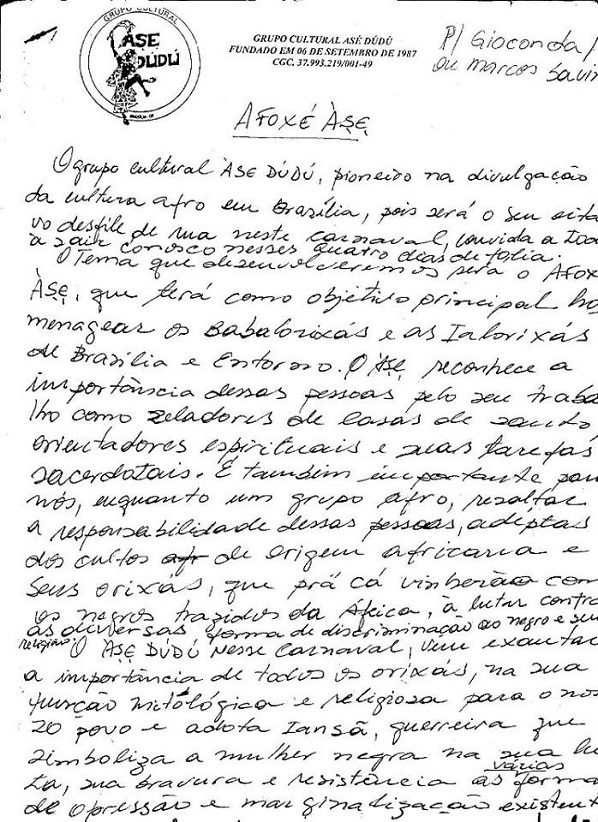 GRUPO CULTURAL
ASE
DÚDÚ
BRASÍLIA-DF
GRUPO CULTURAL ASÉ DÚDÚ
FUNDADO EM 06 DE SETEMBRO DE 1987
CGC. 37.993.219/001-49
P/ Gioconda/
ou Marcos Savin
AFOXÉ ÀSE
O grupo cultural ASE DÚDÚ, pioneiro na divulgação
da cultura afro em Brasília, pois será o seu oita
vo desfile de rua neste carnaval, convida a toa
a sair conosco nesses quatro dias de folia.
O Tema que desenvolveremos será o Afox
ÀSE, que terá como objetivo principal ho
menagear os Babalorixás e as Ialorixás
de Brasília e Entorno. O ÀSE reconhece a
importância dessas pessoas pelo seu traba
lho como zeladores de casas de santo
orientadores espirituais e suas tarefas
sacerdotais. É também importante par
nós, enquanto um grupo afro, resaltar
a responsabilidade dessas pessoas, adeptas
dos cultos afr de origem africana e
seus orixás, que prá cá vinherão com
os negros trazidos da África, à lutar contra
as diversas forma de discriminação ao negro e sua
religião. O ASE DÚDÚ nesse Carnaval, vem exautar
a importância de todos os orixás, na sua
função mitológica e religiosa para o nos
so povo e adota Iansã, guerreira que
simboliza a mulher negra na sua lu
ta, sua bravura e resistência as várias forma
de opressão e marginalização existent